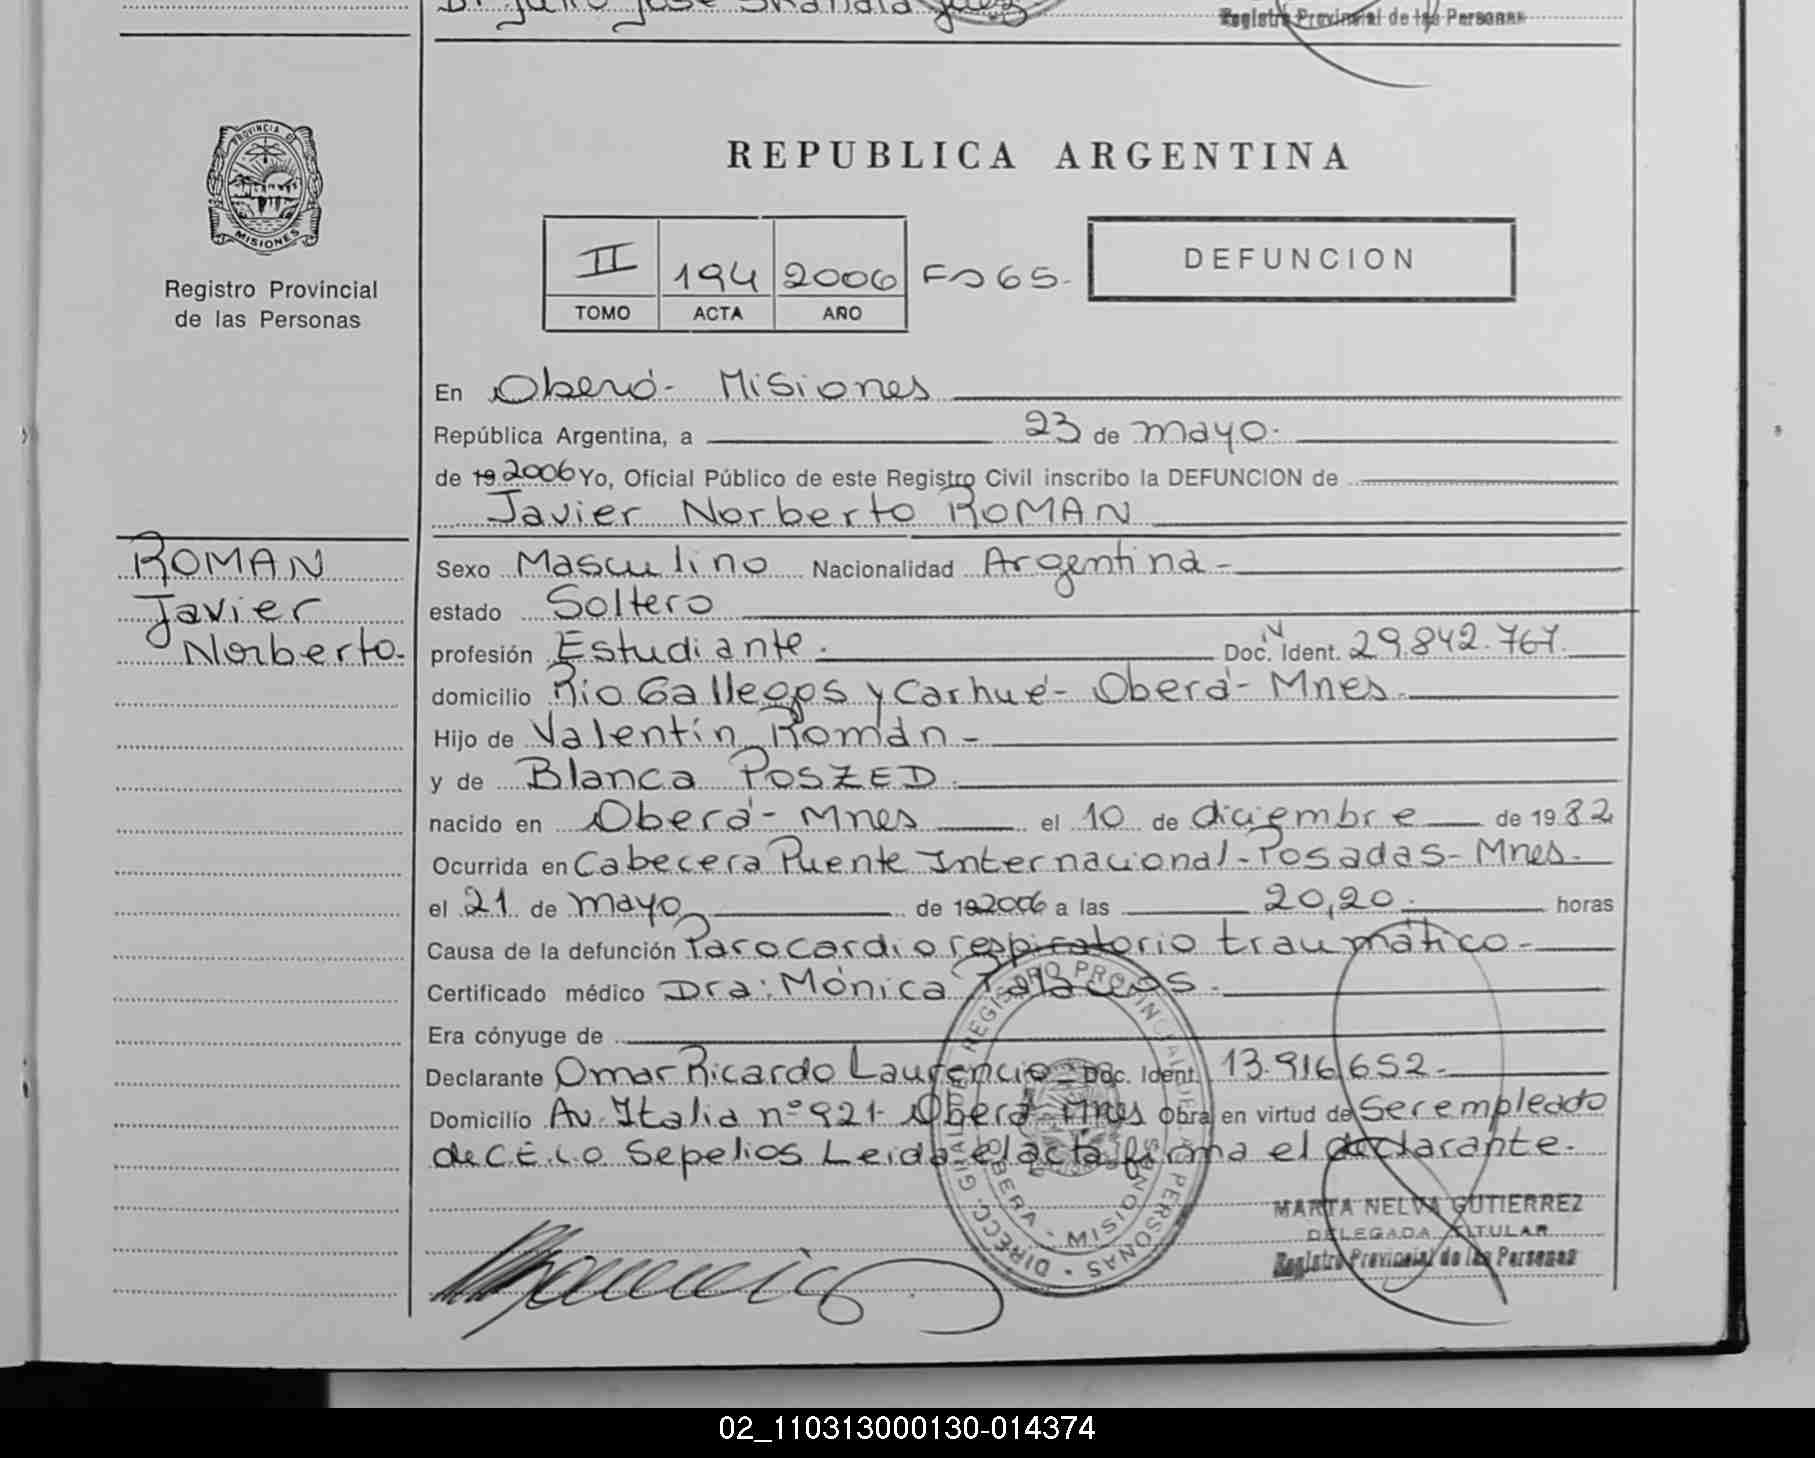 Registro Provincial de las Personas
PROVINCIA D
MISIONES
Registro Provincial
de las Personas
REPUBLICA ARGENTINA
II 194 2006 Fº 65.
TOMO ACTA AÑO
DEFUNCION
En Oberá - Misiones
República Argentina, a 23 de mayo.
de 19 2006 Yo, Oficial Público de este Registro Civil inscribo la DEFUNCION de
Javier Norberto ROMAN
ROMAN
Javier
Norberto.
Sexo Masculino Nacionalidad Argentina -
estado Soltero
profesión Estudiante. Doc. N Ident. 29.842.767.
domicilio Rio Gallegos y Carhué - Oberá - Mnes.
Hijo de Valentín Román -
y de Blanca POSZED.
nacido en Oberá - Mnes el 10 de diciembre de 1982
Ocurrida en Cabecera Puente Internacional - Posadas - Mnes.
el 21 de mayo de 19 2006 a las 20,20. horas
Causa de la defunción Parocardiorespiratorio traumático -
Certificado médico Dra: Mónica Palacios.
Era cónyuge de
Declarante Omar Ricardo Laurencio - Doc. Ident. 13.916.652 -
Domicilio Av. Italia nº 921 - Oberá - Mnes Obra en virtud de Ser empleado
de C.E.L.O Sepelios Leida el acta firma el declarante.
DIRECC. GRAL. DEL REGISTRO PROVINCIAL DE LAS PERSONAS
OBERA - MISIONES
MARTA NELVA GUTIERREZ
DELEGADA TITULAR
Registro Provincial de las Personas
02_110313000130-014374